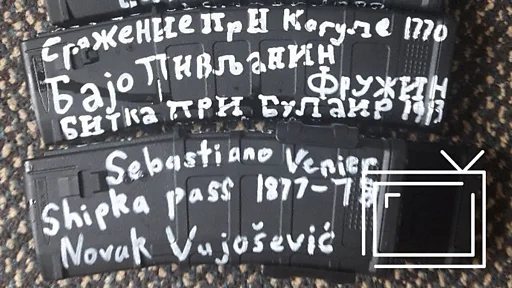 Сражение при Кагуле 1770
Бајо Пивљанин
Фружин
Битка при Булаир 1913
Sebastiano Venier
Shipka pass 1877-78
Novak Vujošević